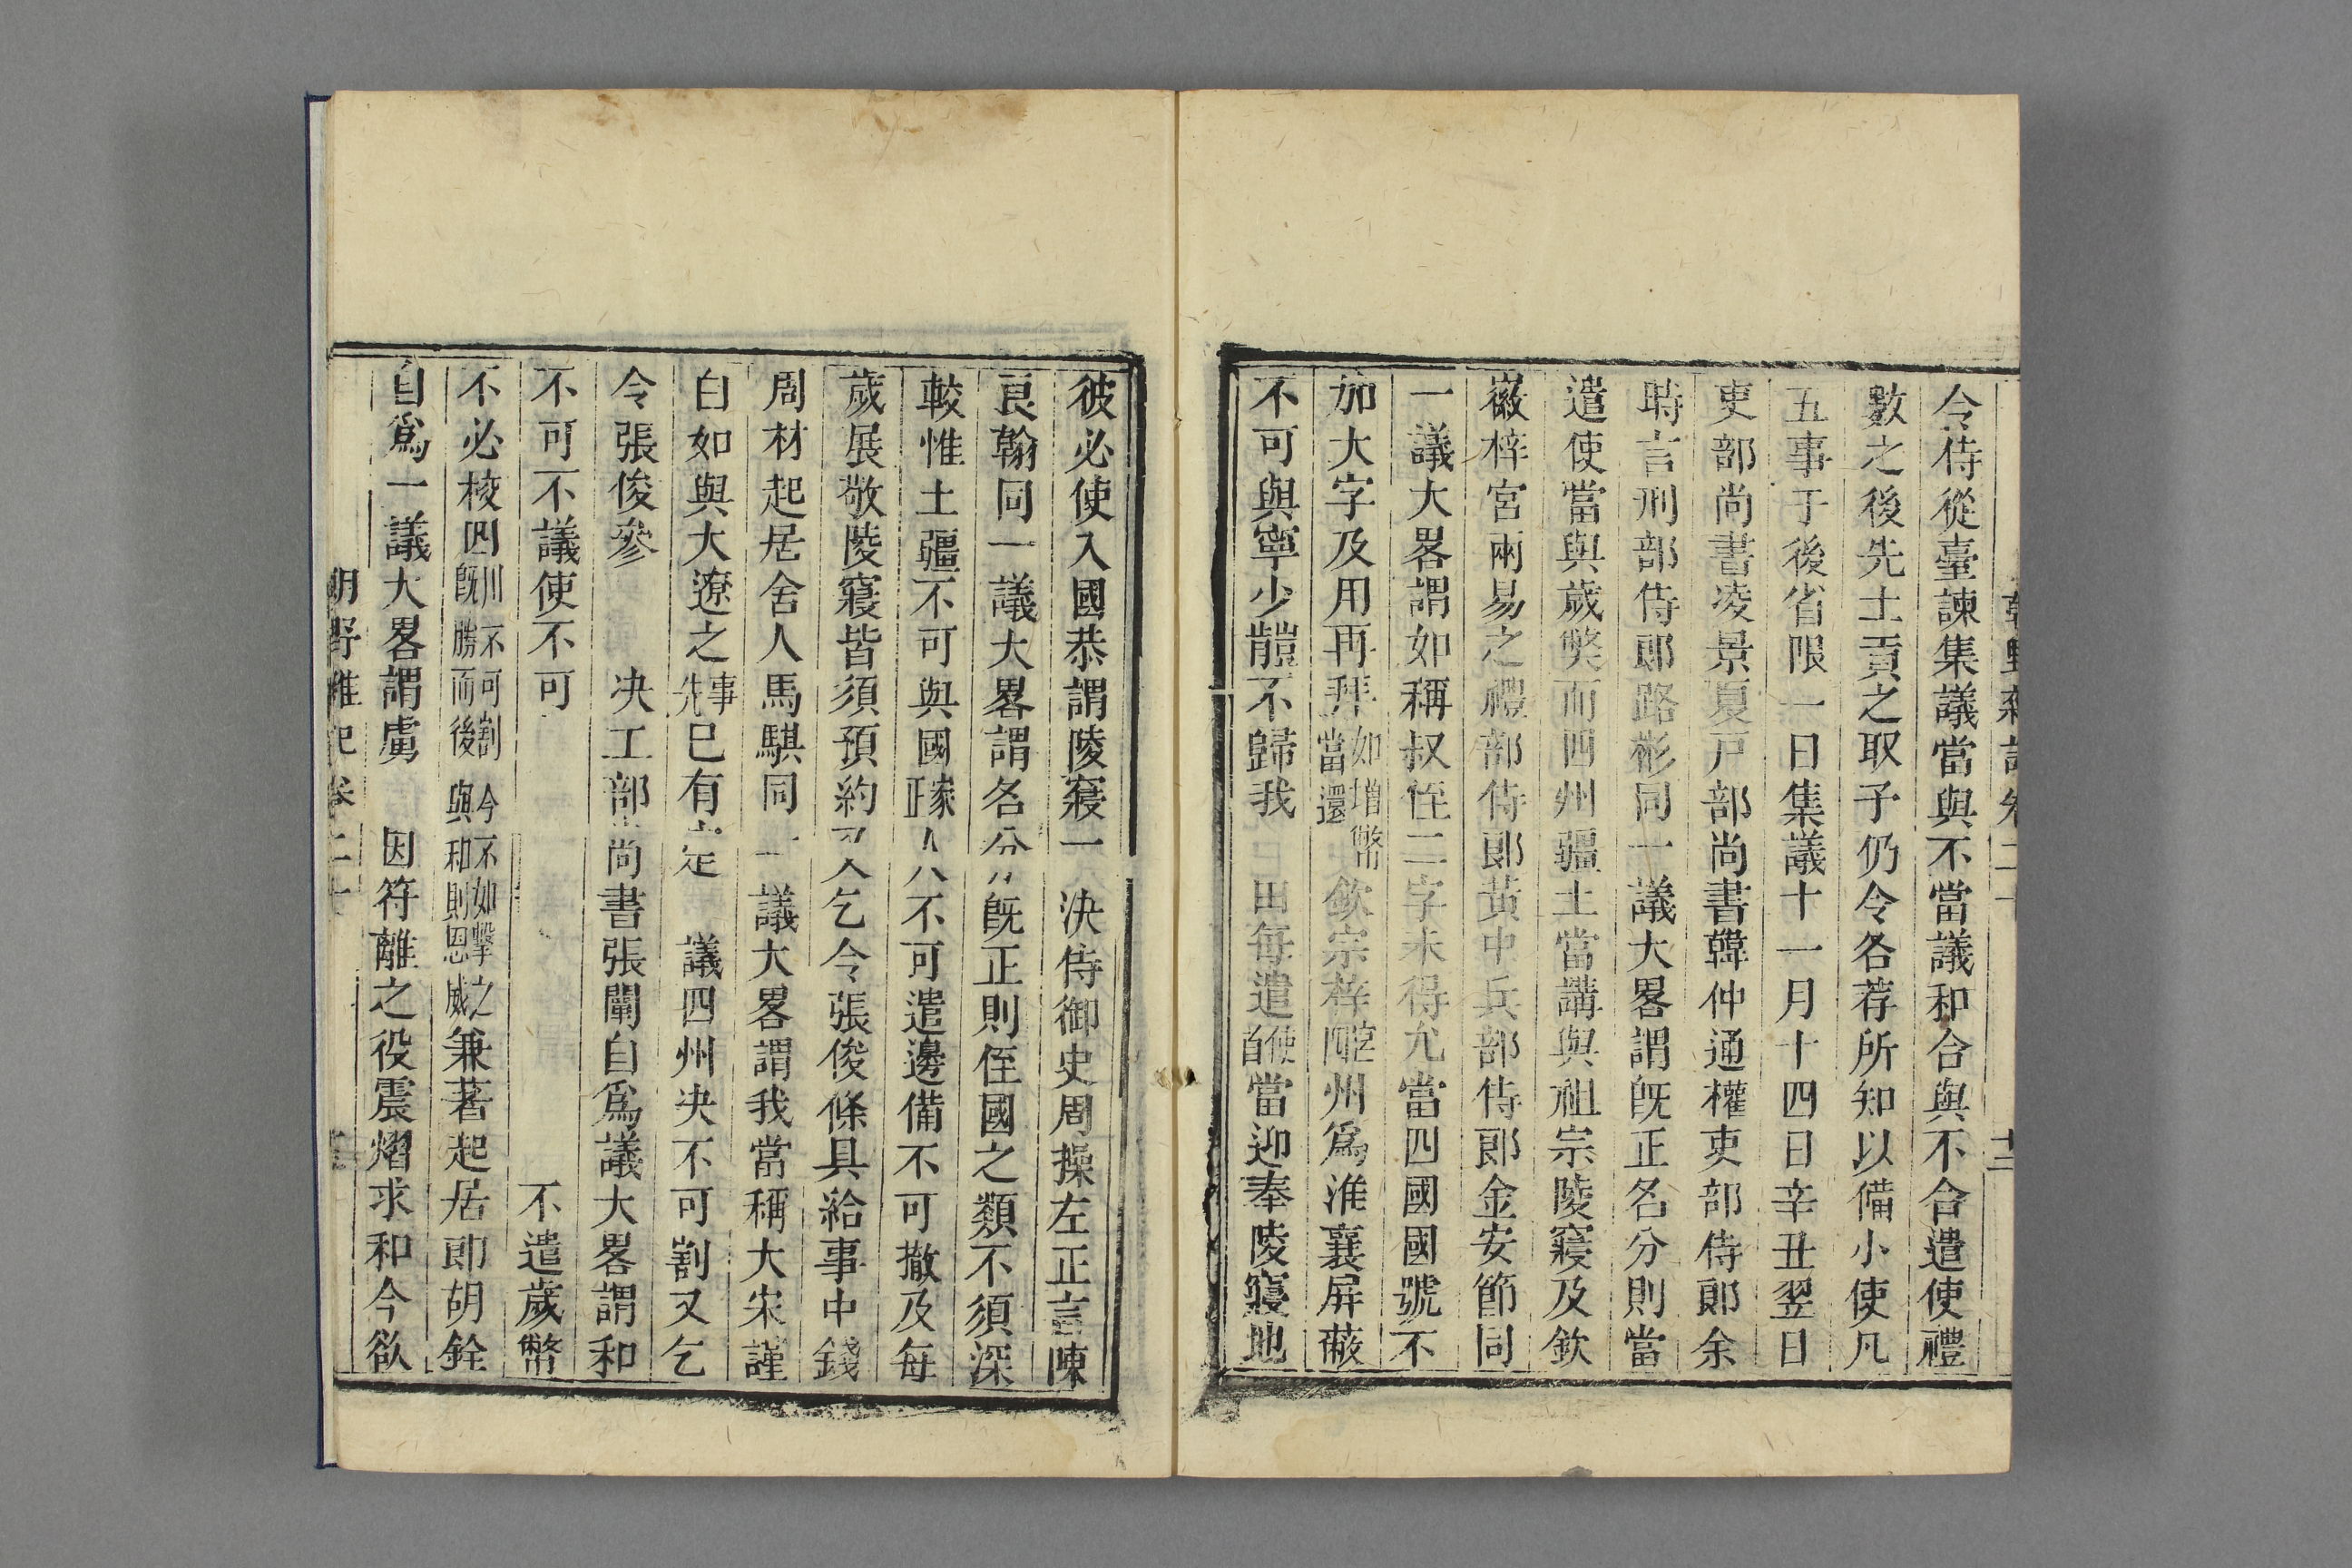 令侍從臺諫集議當與不當議和合與不合遣使禮
數之後先土貢之取予仍令各荐所知以備小使凡
五事于後省限一日集議十一月十四日辛丑翌日
吏部尚書凌景夏戸部尚書韓仲通權吏部侍郞余
時言刑部侍郞路彬同一議大畧謂旣正名分則當
遣使當與歲獘而四州疆土當講與祖宗陵寢及欽
徽梓宮兩易之禮部侍郞黃中兵部侍郞金安節同
一議大畧謂如稱叔侄二字未得允當四國國號不
加大字及用再拜如增幣當還欽宗梓宮州爲淮襄屏蔽
不可與寧少鎧不歸我田每遣使當迎奉陵寢地
彼必使入國恭謂陵寢一決侍御史周操左正言陳
良翰同一議大畧謂名分旣正則侄國之類不須深
較惟土疆不可與國人不可遣邊備不可撤及每
歲展敬陵寢皆須預約又乞令張俊條具給事中錢
周材起居舍人馬騏同一議大畧謂我當稱大宋謹
白如與大遼之事先已有定議四州决不可割又乞
令張俊參决工部尚書張闡自爲議大畧謂和
不可不議使不可不遣歲幣
不必校四川不可割旣勝而後與和則恩威今不如擊之兼著起居郎胡銓
自爲一議大畧謂虜因符離之役震熠求和今欲